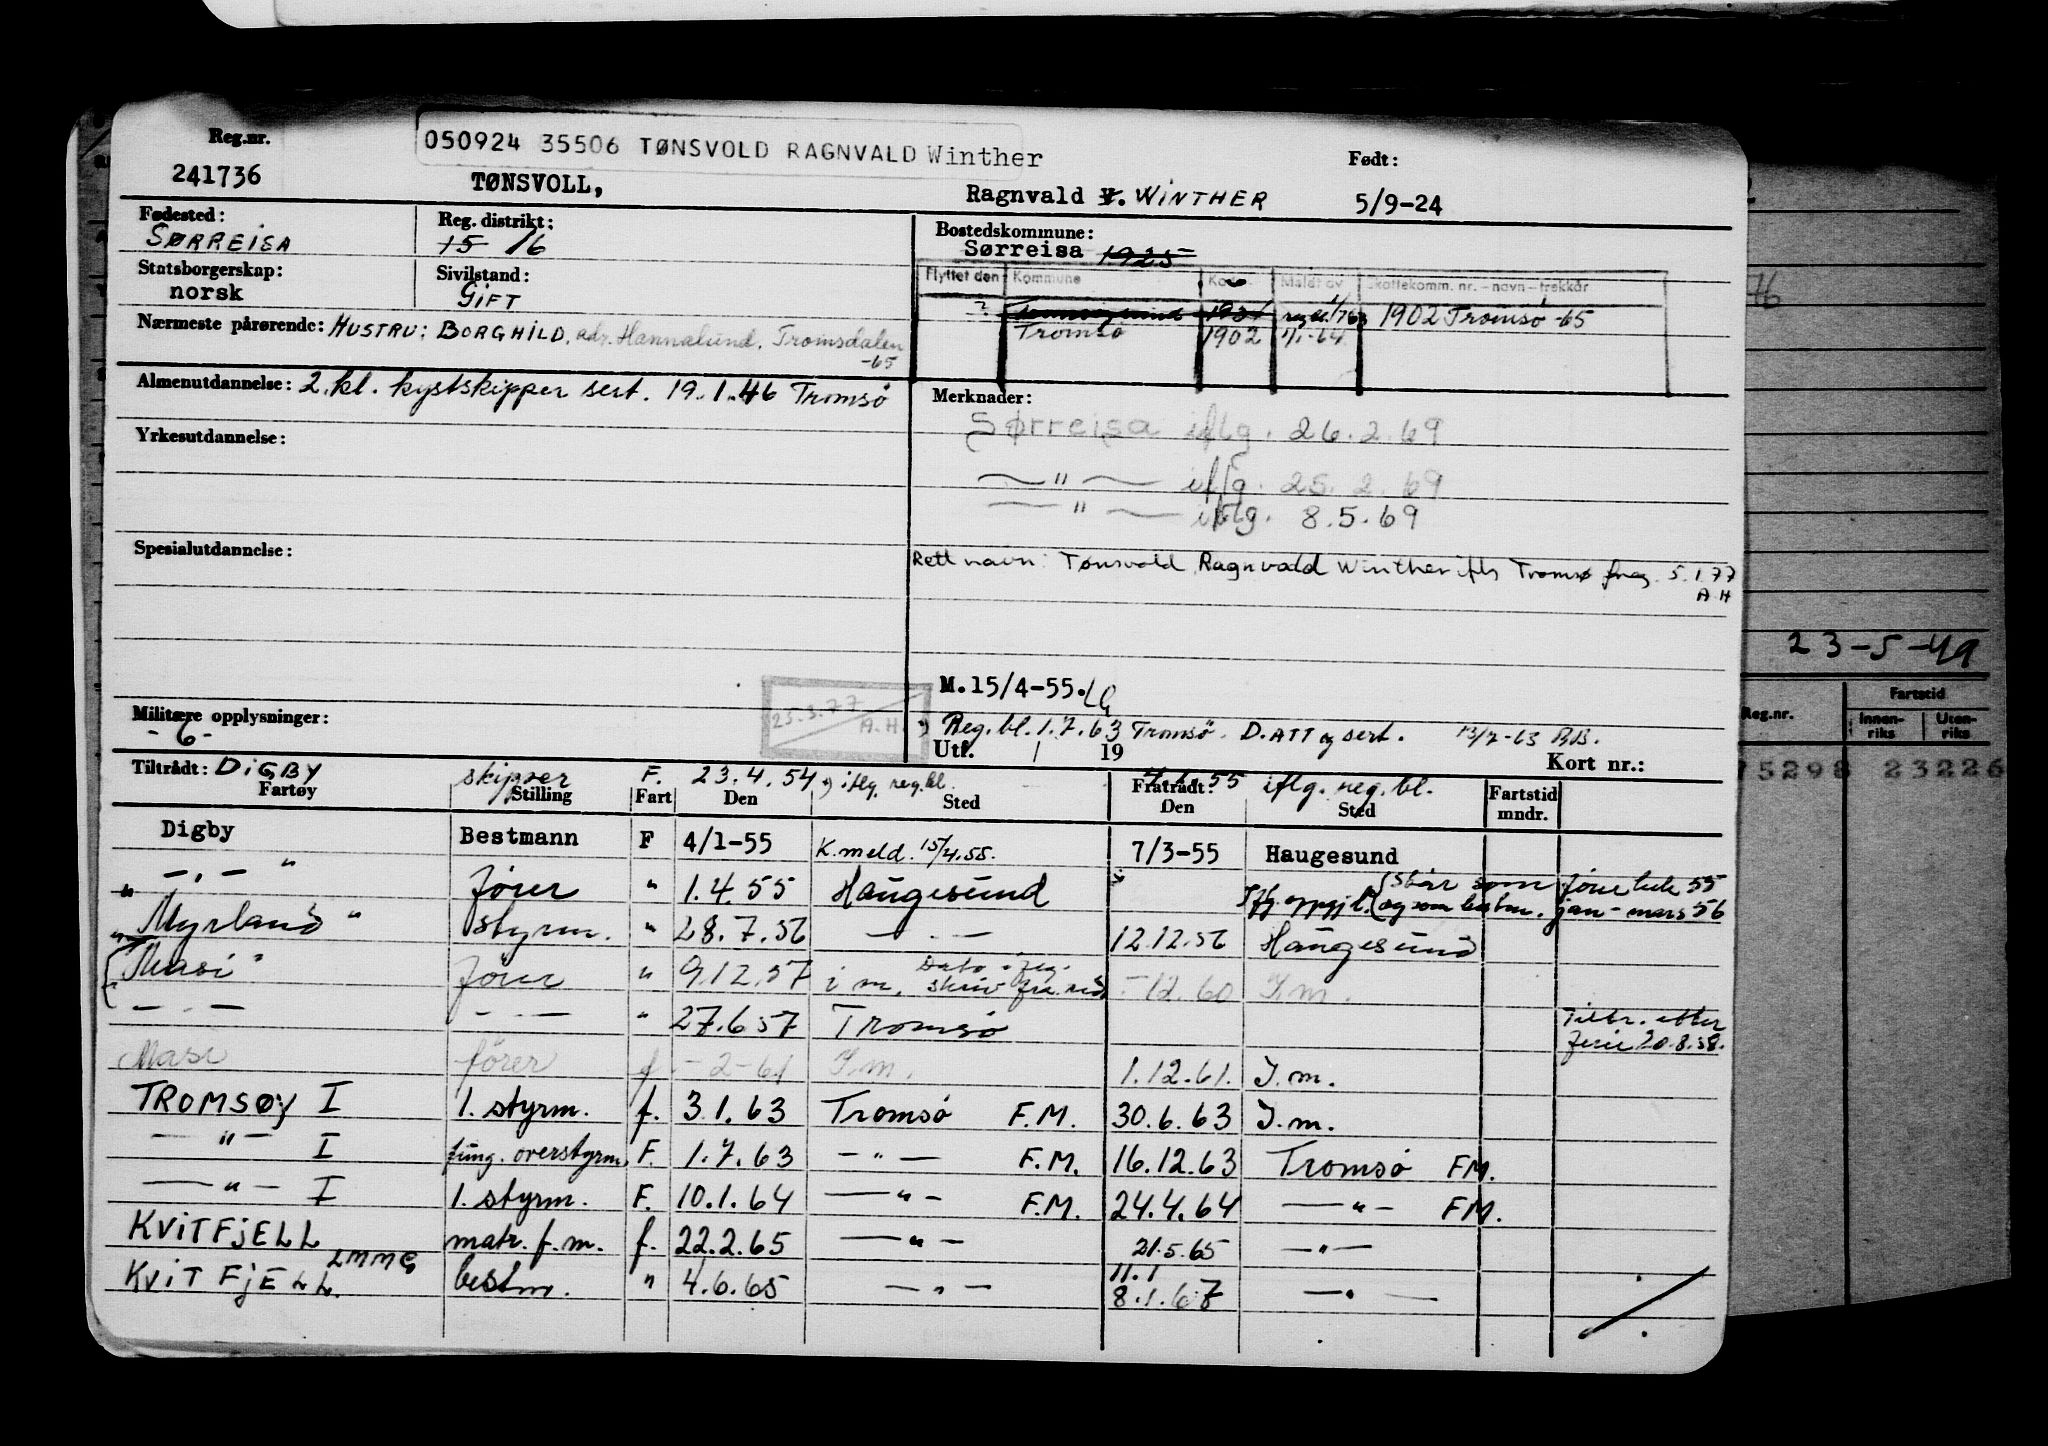 Reg.nr.
241736
050924 35506 TØNSVOLD RAGNVALD Winther
TØNSVOLL, Ragnvald V. WINTHER
Født:
5/9-24
Fødested:
SØRREISA
Reg. distrikt:
15 16
Bostedskommune:
Sørreisa 1925
Statsborgerskap:
norsk
Sivilstand:
GIFT
Flyttet den Kommune Meldt av Skattekomm. nr. - navn - trekkår
? 1931 1902 Tromsø -65
Tromsø 1902 1/1-64
Nærmeste pårørende: HUSTRU: BORGHILD, adr. Hannalund, Tromsdalen
-65
Almenutdannelse: 2. kl. kystskipper sert. 19.1.46 Tromsø
Yrkesutdannelse:
Spesialutdannelse:
Militære opplysninger:
-6-
Merknader:
Sørreisa iflg. 26.2.69
— " — iflg. 25.2.69
— " — iflg. 8.5.69
Rett navn: Tønsvold Ragnvald Winther iflg Tromsø freg. 5.1.77
A H
M.15/4-55.
25.3.77
A.H
Reg.bl. 1.7.63 Tromsø. D. ATT og sert. 13/7-63 BB.
Utf. / 19
Kort nr.:
Tiltrådt: DIGBY skipper F. 23.4.54 iflg. reg.bl. 4.1.55 iflg. reg.bl.
Fratrådt:
Fartøy Stilling Fart Den Sted Den Sted Fartstid mndr.
Digby Bestmann F 4/1-55 K.meld. 15/4.55. 7/3-55 Haugesund
" — " — " fører " 1.4.55 Haugesund (står som fører
og som bestm. jan-mars 56
" Myrland " styrm. " 28.7.56 — " — 12.12.56 Haugesund
Masi " fører " 9.12.57 i m. skriv fra red. - 12.60 I.m.
— " — — " — " 27.6 57 Tromsø Tiltr. etter
ferie 20.8.58.
Masi fører f - 2 - 61 I.m. 1.12.61. I.m.
TROMSØY I 1. styrm. f. 3.1.63 Tromsø F.M. 30.6.63 I.m.
— " — I fung. overstyrm. F. 1.7.63 — " — F.M. 16.12.63 Tromsø FM.
— " — I 1. styrm. F. 10.1.64 — " — F.M. 24.4.64 — " — FM.
KVITFJELL matr. f.m. f. 22.2.65 — " — 21.5.65 — " —
LMMG
KVITFJELL. bestm. " 4.6.65 — " — 11.1
8.1.67 — " —
23-5-49
Reg.nr. Fartstid
Innenriks Utenriks
75298 23226